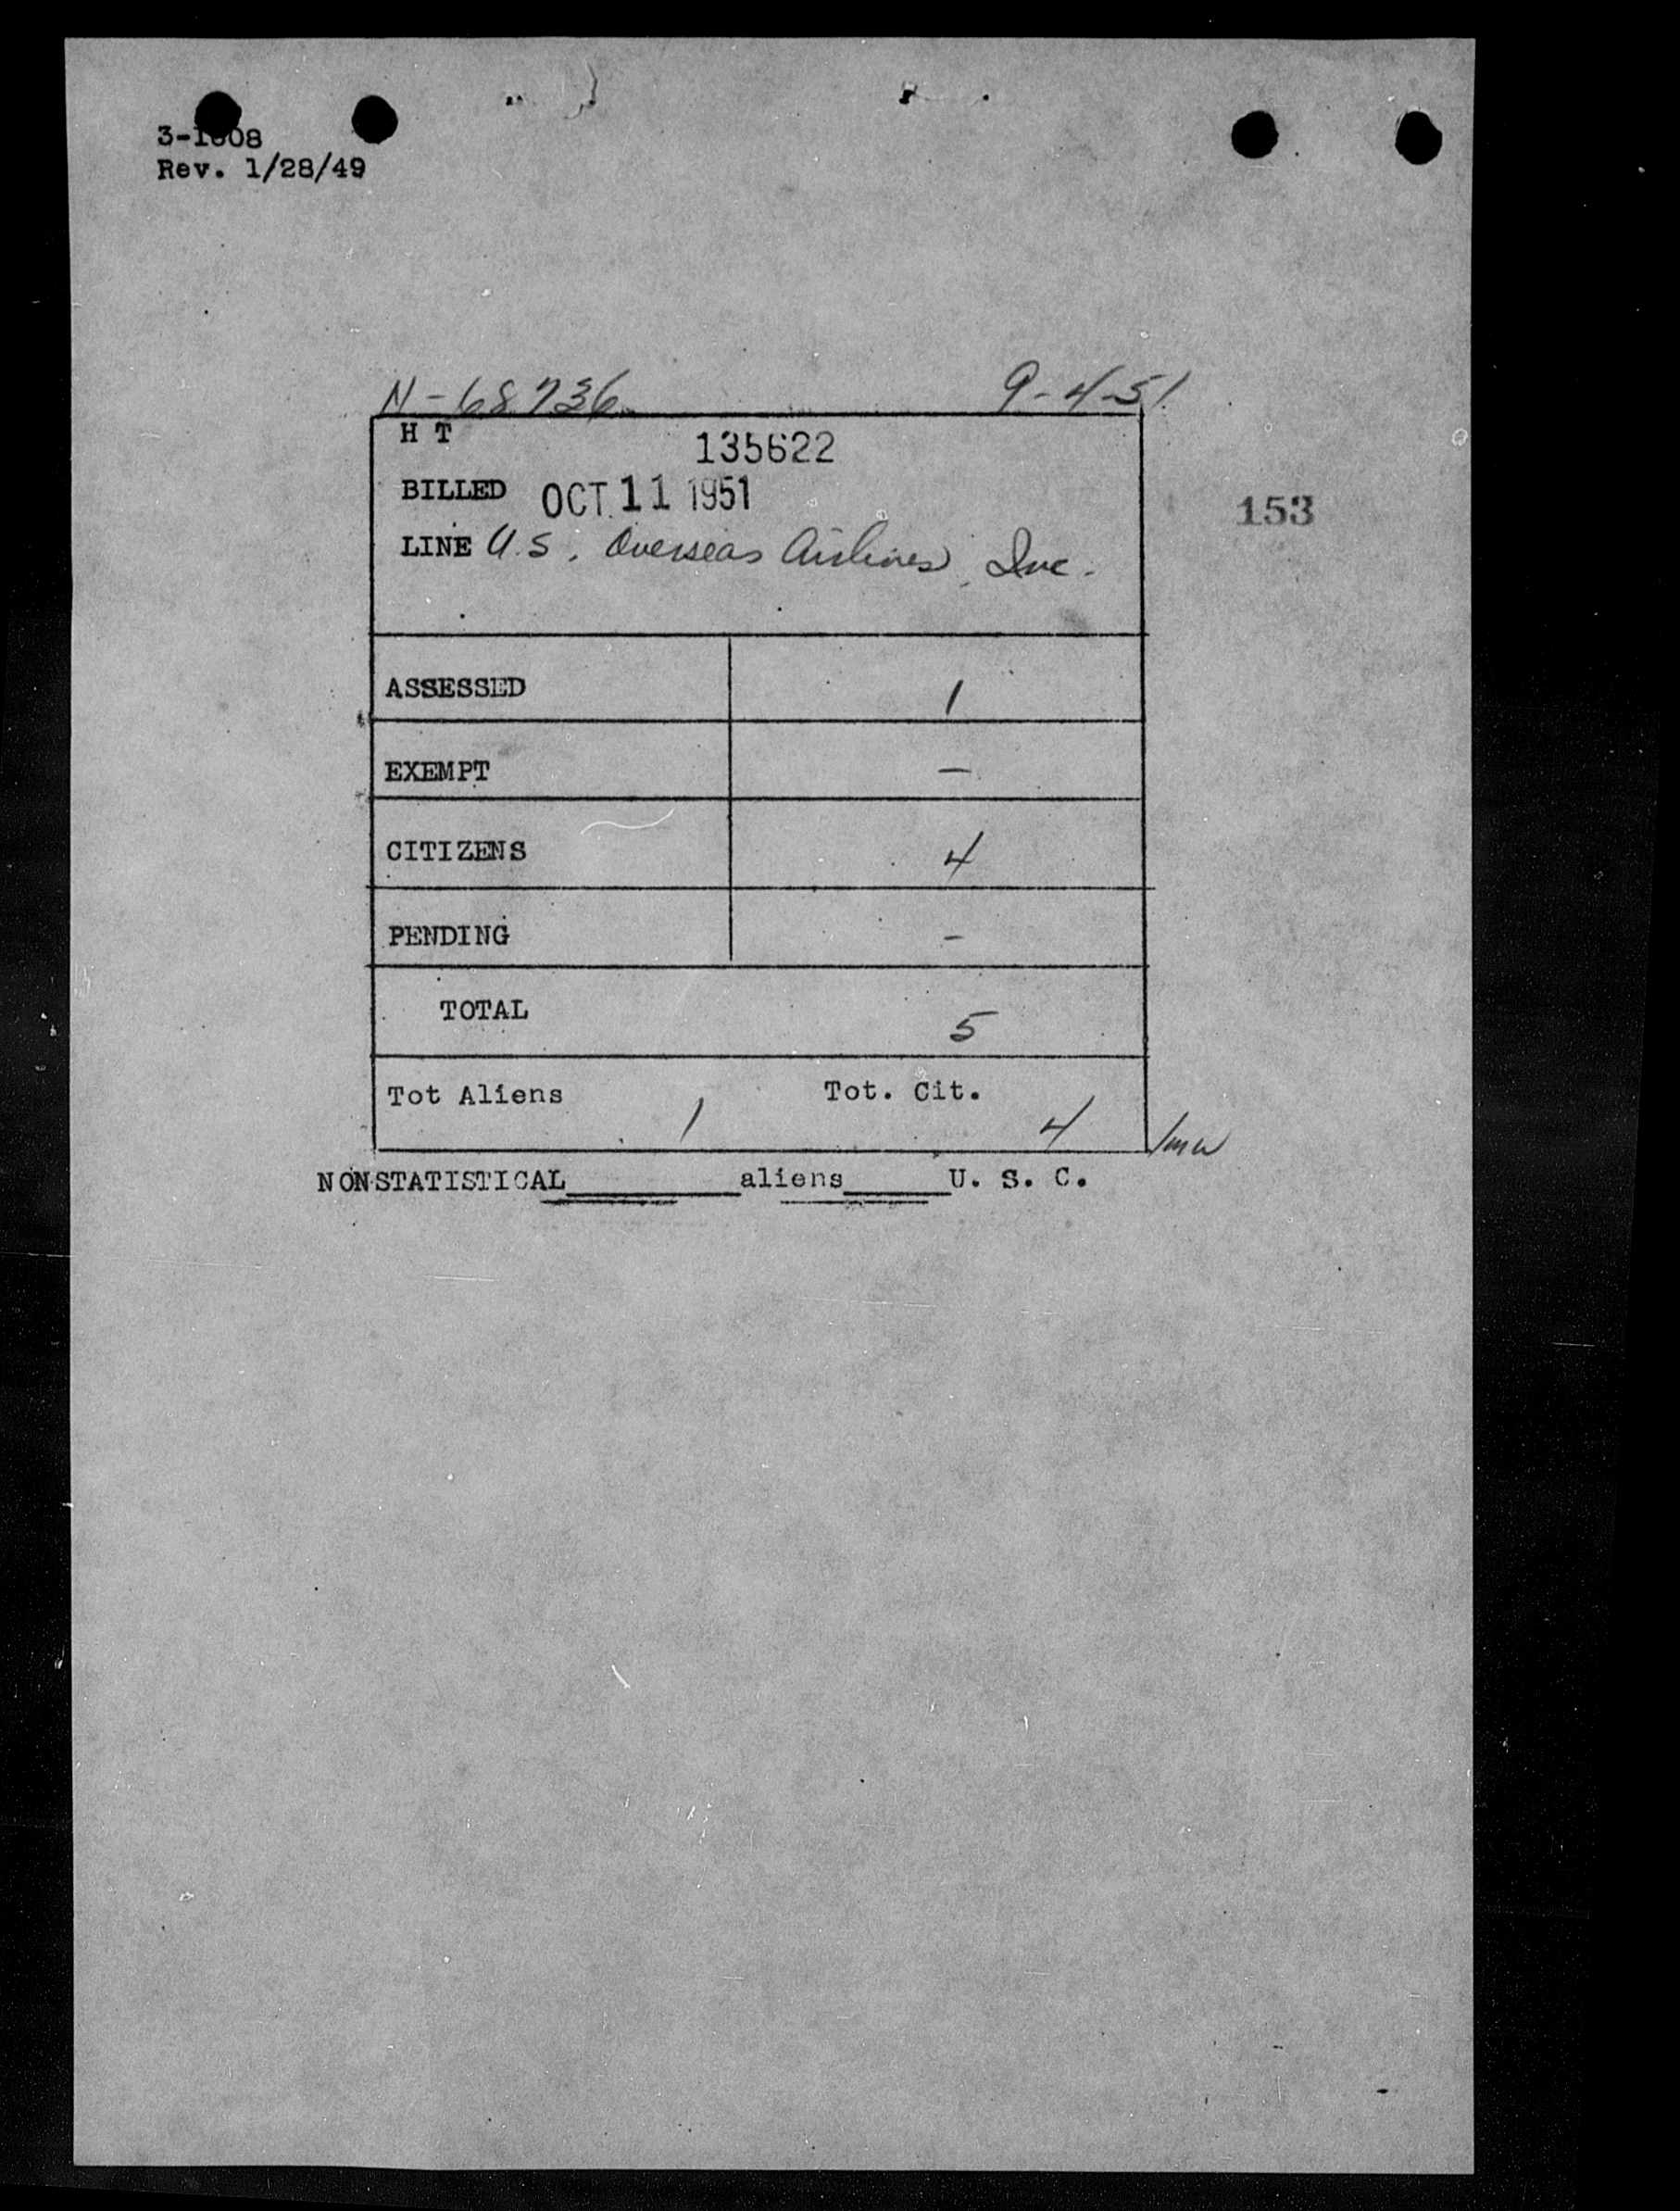 3-1608
Rev. 1/28/49
N-68736 9-4-51
H T 135622
BILLED OCT 11 1951
153
LINE U.S. Overseas Airlines, Inc.
ASSESSED 1
EXEMPT –
CITIZENS 4
PENDING –
TOTAL 5
Tot Aliens 1 Tot. Cit. 4
NONSTATISTICAL________aliens_____U. S. C.